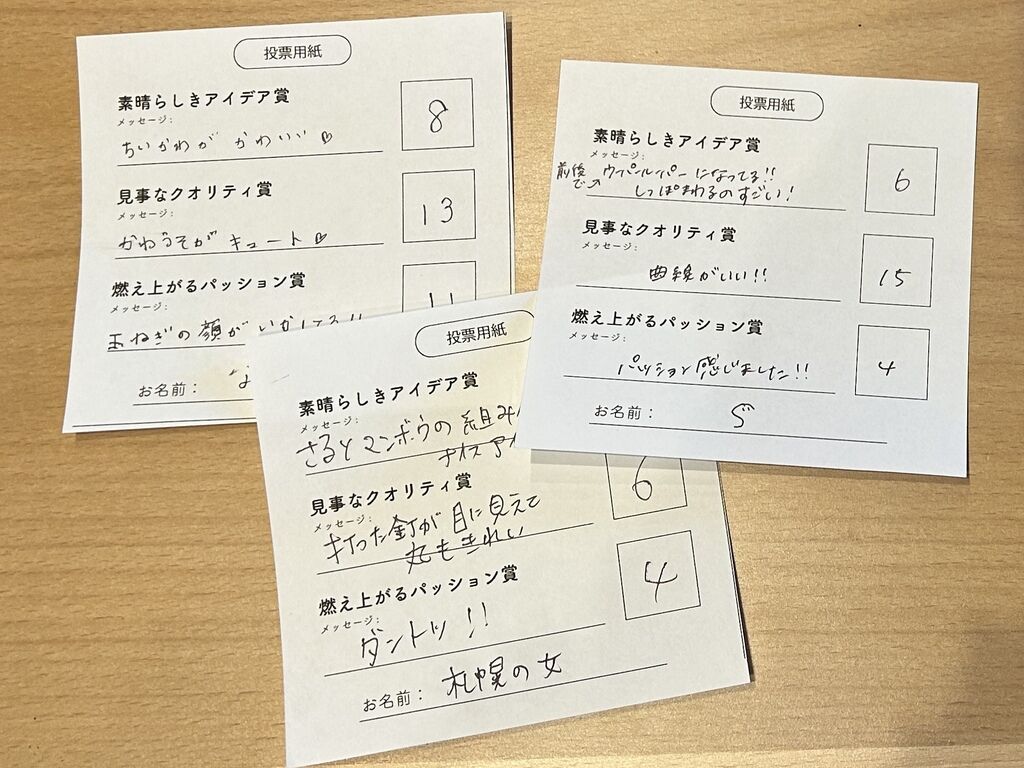 投票用紙
素晴らしきアイデア賞
メッセージ:
8
ちいかわが かわいい♡
見事なクオリティ賞
メッセージ:
13
かわうそが キュート♡
燃え上がるパッション賞
メッセージ:
11
玉ねぎの顔がいかしてる!!
お名前:
投票用紙
素晴らしきアイデア賞
メッセージ:
6
前後で→ウーパールーパーになってる!!
しっぽまわるのすごい!
見事なクオリティ賞
メッセージ:
15
曲線がいい!!
燃え上がるパッション賞
メッセージ:
4
パッション感じました!!
お名前:
投票用紙
素晴らしきアイデア賞
メッセージ:
さるとマンボウの組み
ナイスアイ
見事なクオリティ賞
メッセージ:
6
打った釘が目に見えて
丸もきれい
燃え上がるパッション賞
メッセージ:
4
ダントツ!!
お名前: 札幌の女